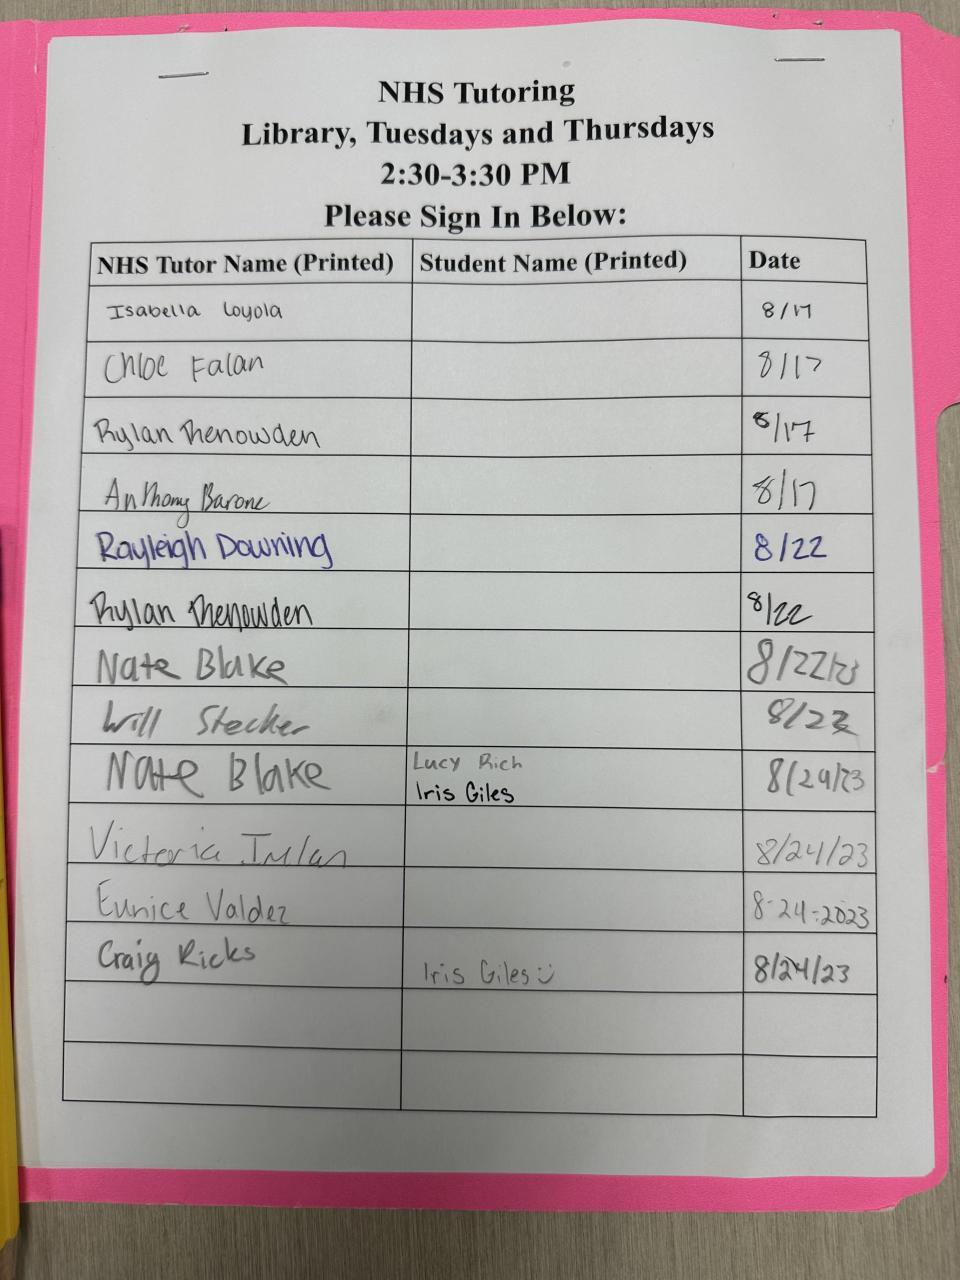 NHS Tutoring
Library, Tuesdays and Thursdays
2:30-3:30 PM
Please Sign In Below:
NHS Tutor Name (Printed) Student Name (Printed) Date
Isabella Loyola 8/17
Chloe Falan 8/17
Rylan Rhenowden 8/17
Anthony Barone 8/17
Rayleigh Downing 8/22
Rylan Rhenowden 8/22
Nate Blake 8/22/23
Will Stecker 8/22
Nate Blake Lucy Rich 8/29/23
Iris Giles
Victoria 8/24/23
Eunice Valdez 8-24-2023
Craig Ricks Iris Giles :) 8/24/23